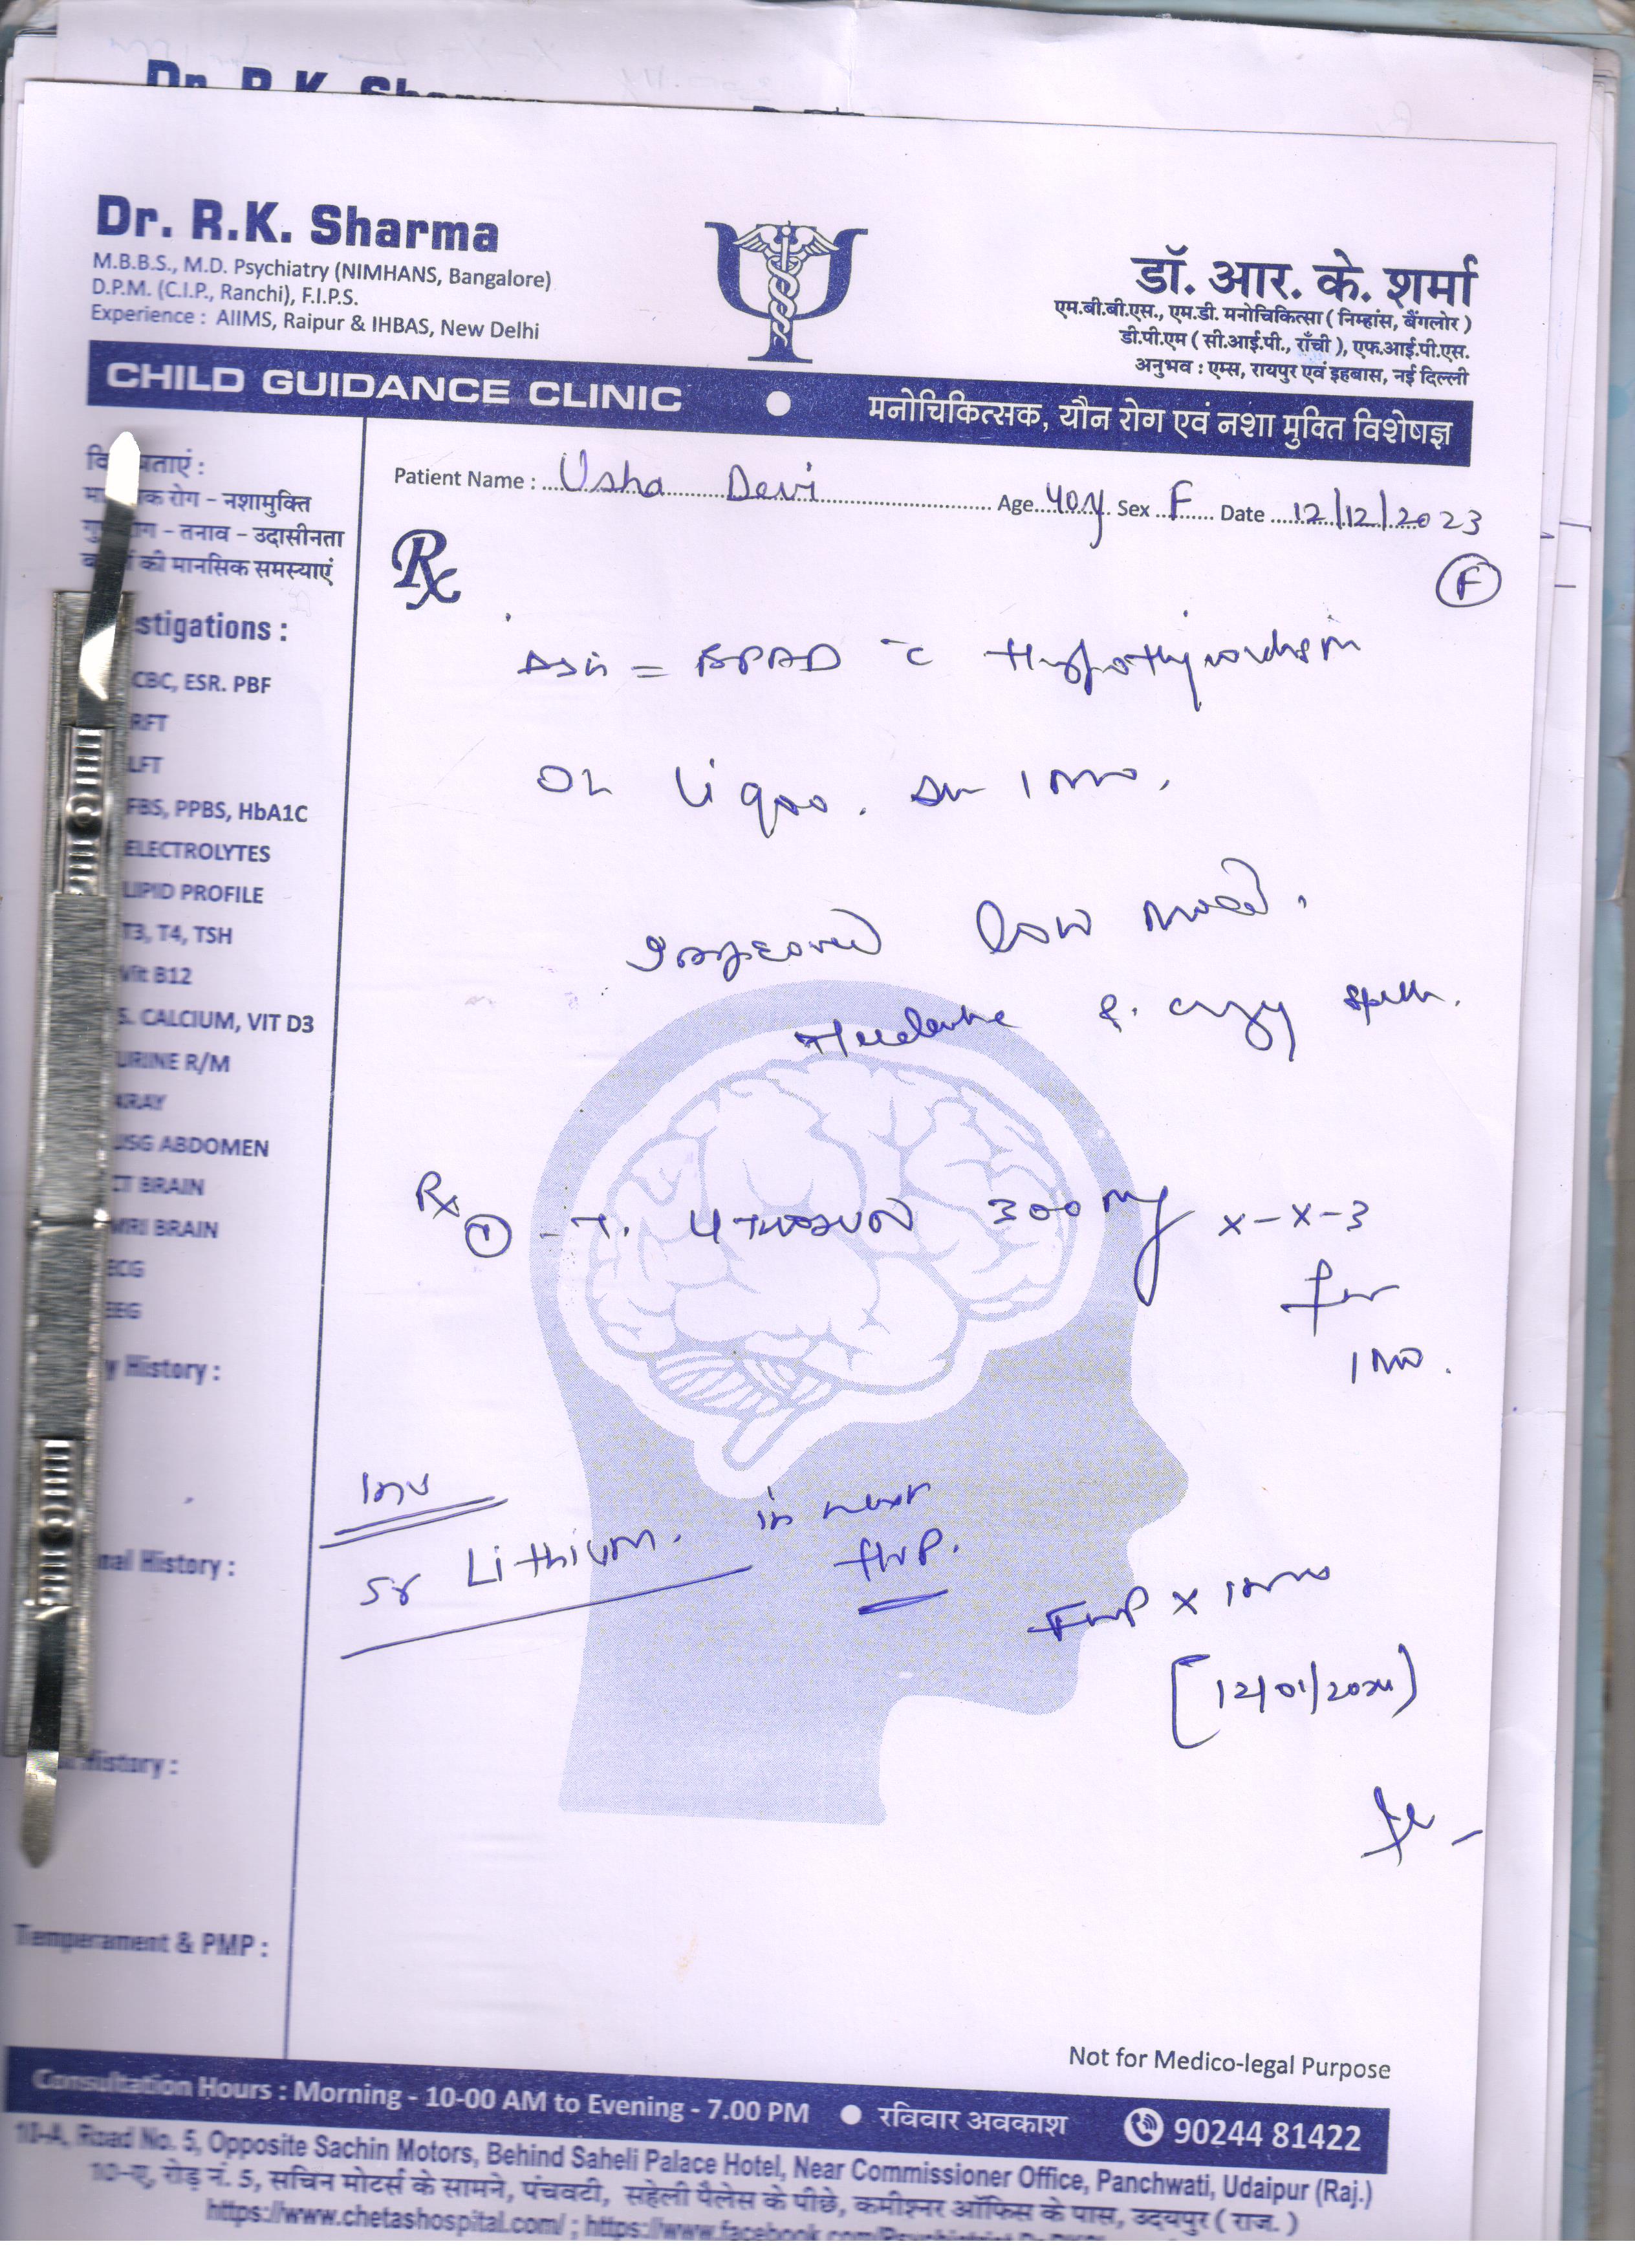 Dr. R.K. Sharma
Dr. R.K. Sharma
M.B.B.S., M.D. Psychiatry (NIMHANS, Bangalore)
D.P.M. (C.I.P., Ranchi), F.I.P.S.
Experience : AIIMS, Raipur & IHBAS, New Delhi
डॉ. आर. के. शर्मा
एम.बी.बी.एस., एम.डी. मनोचिकित्सा ( निम्हांस, बैंगलोर )
डी.पी.एम ( सी.आई.पी., राँची ), एफ.आई.पी.एस.
अनुभव : एम्स, रायपुर एवं इहबास, नई दिल्ली
CHILD GUIDANCE CLINIC ● मनोचिकित्सक, यौन रोग एवं नशा मुक्ति विशेषज्ञ
Patient Name : Usha Devi Age 40y Sex F Date 12/12/2023
रोग – नशामुक्ति
– तनाव – उदासीनता
की मानसिक समस्याएं
stigations :
CBC, ESR. PBF
RFT
LFT
FBS, PPBS, HbA1C
ELECTROLYTES
LIPID PROFILE
T3, T4, TSH
Vit B12
S. CALCIUM, VIT D3
URINE R/M
XRAY
USG ABDOMEN
CT BRAIN
MRI BRAIN
ECG
EEG
y History :
nal History :
History :
Temperament & PMP :
Rx
F
= BPAD c Hypothyroidism
On Li 900. 1 mo.
Improved low mood.
Headache & crying spells.
Rx
1 - T. 300 mg x-x-3
for
1 mo.
Inv
Sr Lithium. in next
fwp.
Fwp x 1 mo
[12/01/2024)
Not for Medico-legal Purpose
Consultation Hours : Morning - 10-00 AM to Evening - 7.00 PM ● रविवार अवकाश 90244 81422
10-A, Road No. 5, Opposite Sachin Motors, Behind Saheli Palace Hotel, Near Commissioner Office, Panchwati, Udaipur (Raj.)
10-ए, रोड़ नं. 5, सचिन मोटर्स के सामने, पंचवटी, सहेली पैलेस के पीछे, कमीश्नर ऑफिस के पास, उदयपुर ( राज. )
https://www.chetashospital.com/ ; https://www.facebook.com/